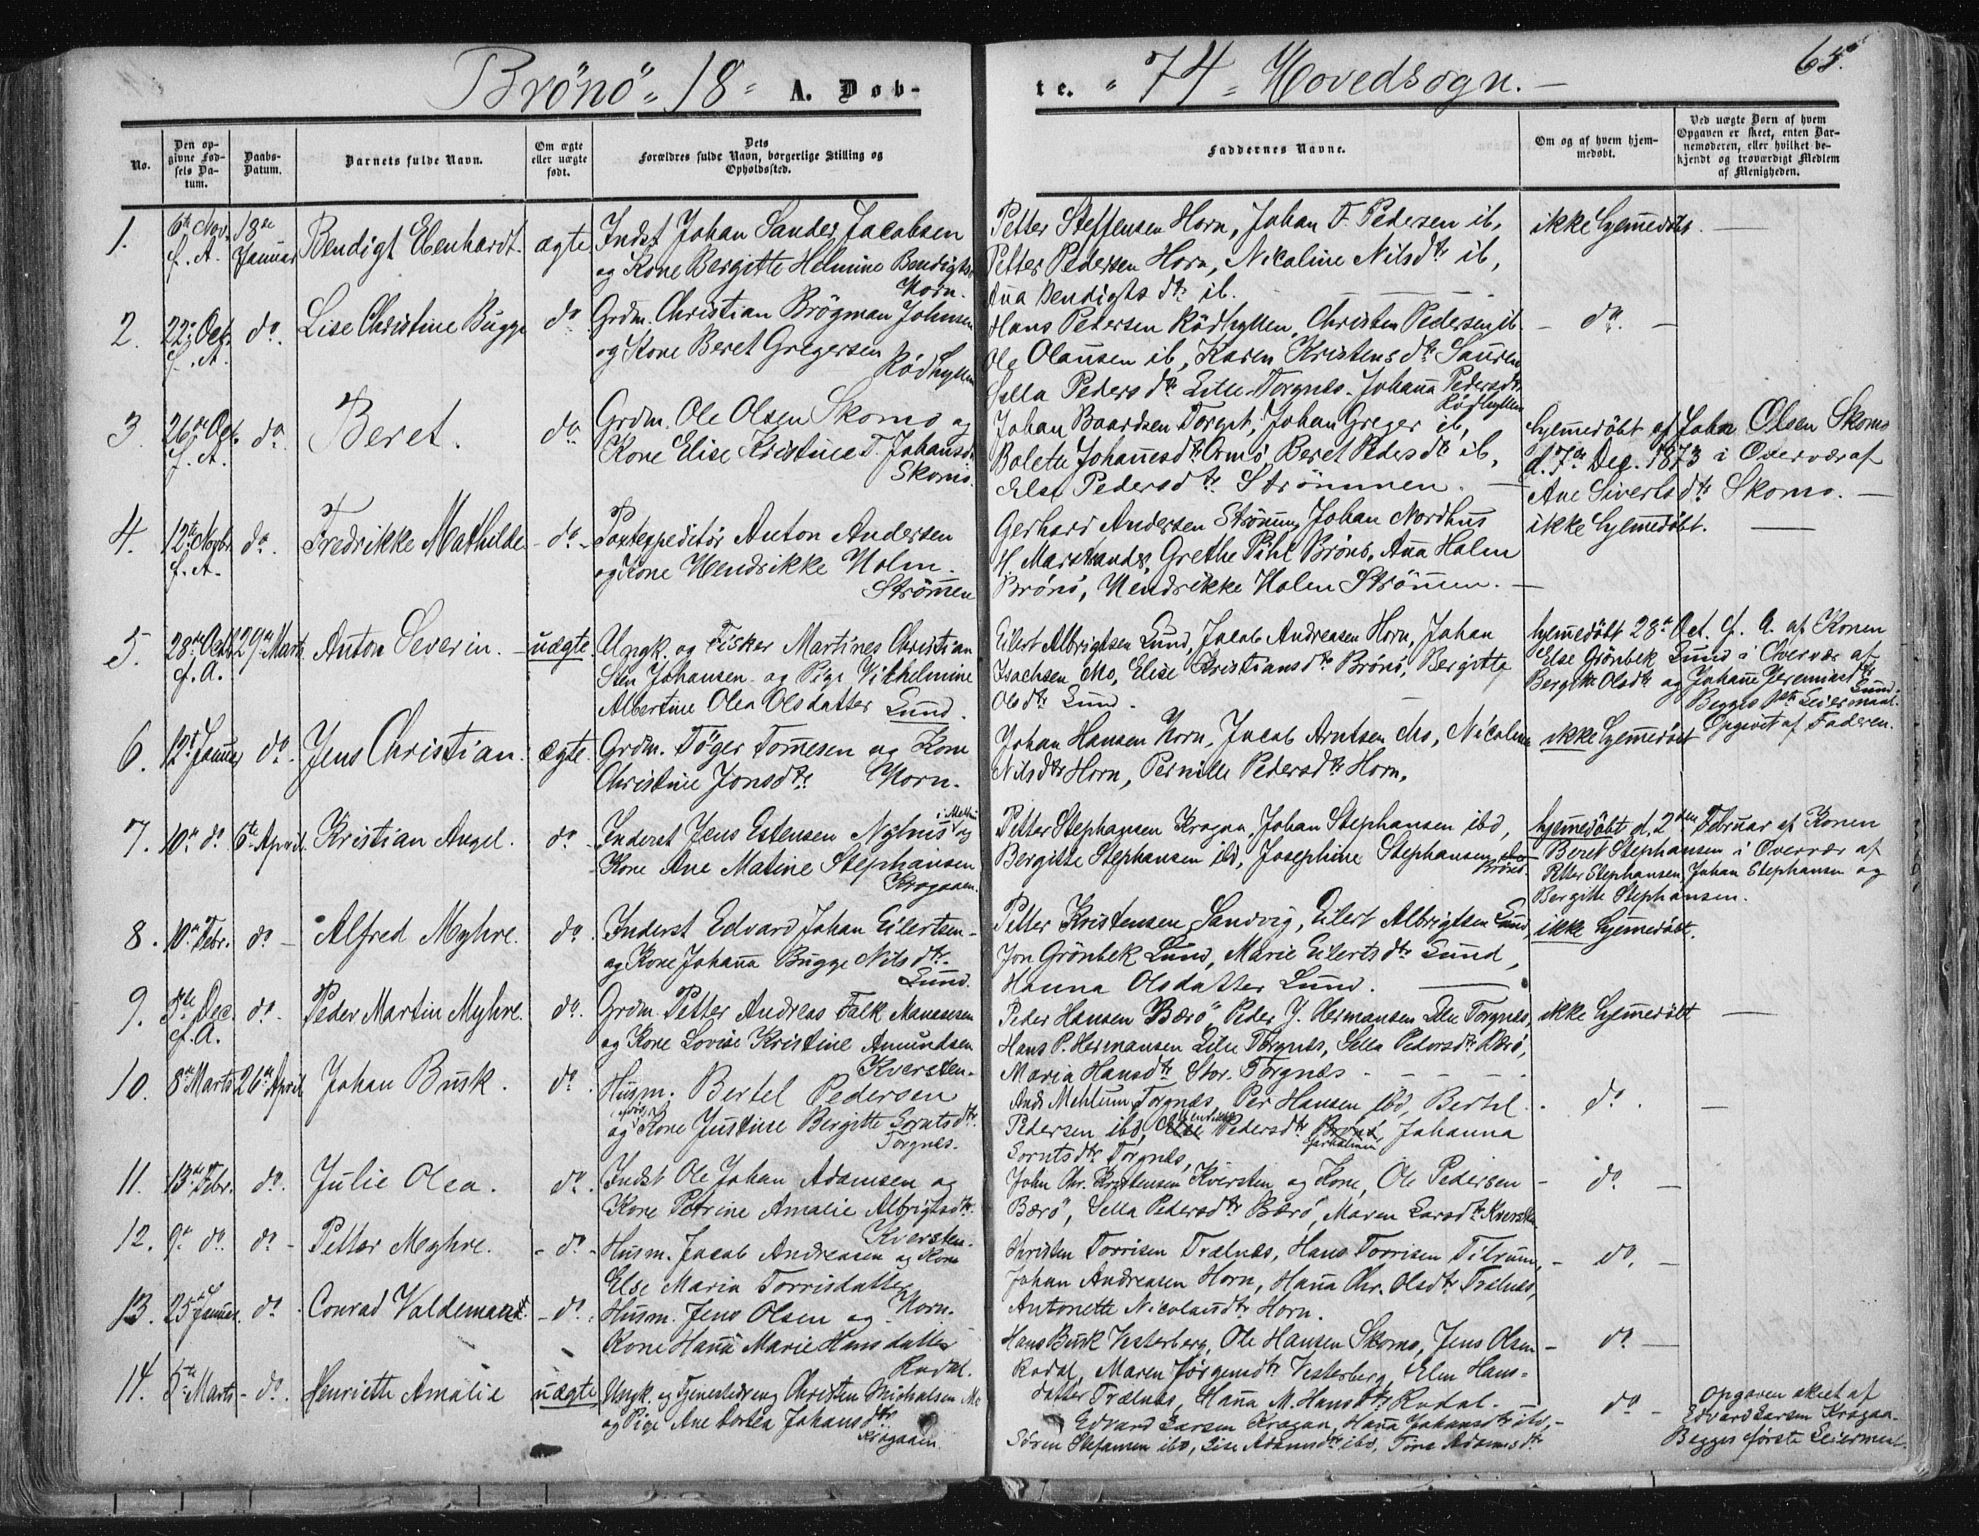 Brönö 18 A. Døb-
te. 74 Hovedsogn.
65.
No.
Den op-
givne Fød-
sels Da-
tum.
Daabs-
Datum.
Barnets fulde Navn.
Om ægte
eller uægte
født.
Dets
Forældres fulde Navn, borgerlige Stilling og
Opholdssted.
Faddernes Navne.
Om og af hvem hjem-
medøbt.
Ved uægte Børn af hvem
Opgaven er skeet, enten Bar-
nemoderen, eller hvilket be-
kjendt og troværdigt Medlem
af Menigheden.
1.
6te Nov.
f. A.
18de
Januar
Bendigt Ebenhardt.
ægte
Indst Johan Sander Jacobsen
og Kone Bergitte Helmine Bendigtsd.
Horn.
Petter Steffensen Horn, Johan F. Pedersen ib,
Petter Pedersen Horn, Nicoline Nilsdtr ib,
Ana Bendigtsdtr ib.
ikke hjemedøbt.
2.
22. Oct.
f. A.
do.
Lise Christine Bugge
do
Grdm. Christian Brögman Johnsen
og Kone Beret Gregersen
Rödhyllen
Hans Pedersen Rödhyllen, Christen Pedersen ib
Ole Olausen ib, Karen Kristensdtr Sauren
Sella Pedersdtr Lille-Torgnes. Johana Pedersdtr
Rödhyllen
do.
3.
26de Oct.
f. A.
do.
Beret.
do.
Grdm. Ole Olsen Skomo og
Kone Elise Kristine T. Johansd.
Skomo.
Johan Baardsen Torget, Johan Greger ib,
Bolette Johanesdtr Ormö, Beret Pedersdtr ib,
Else Pedersdtr Strömmen.
hjemedøbt af John Olsen Skomo
d. 7de Dec. 1873 i Overvær af
Ane Sivertsdtr Skomo.
4.
12te Novbr.
f. A.
do.
Fredrikke Mathilde
do.
Postexpeditör Anton Andersen
og Kone Hendrikke Holm.
Strömen
Gerhard Andersen Ströming Johan Nordhus
H. Marstrander, Grethe Pihl Brönö, Ana Holm
Brönö, Hendrikke Holm Strömen.
ikke hjemedøbt.
5.
28de Octb.
f. A.
29de Marts
Anton Severin.
uægte
Ungk. og Fisker Martines Christian
Sten Johansen og Pige Vilhelmine
Albertine Olea Olsdatter Lund.
Eilert Albrigtsen Lund, Jacob Andreasen Horn, Johan
Isachsen Mo, Elise Kristiansdtr Brönö, Bergitte
Olsdtr Lund.
hjemedøbt 28de Oct. f. A. af Konen
Else Grönbek Lund i Overvær af
Bergitte Olsdtr og Johane Jeremiasdtr
Lund.
Begges 1ste Leiermaal.
Opgivet af Faderen.
6.
12te Januar
do.
Jens Christian.
ægte.
Grdm. Töger Tomesen og Kone
Christine Jonsdtr Horn.
Johan Hansen Horn, Jacob Arntsen Mo, Nicoline
Nilsdtr Horn, Pernille Pedersdtr Horn.
ikke hjemedøbt
7.
10de do
6te April.
Kristian Angel.
do.
Inderst Jens Estensen Nylnis og
Kone Ane Matine Stephansen
Krogaaen.
Petter Stephansen Kragaa, Johan Stephansen ibd,
Bergitte Stephansen ibd, Josephine Stephansen
Brönö.
hjemedøbt d. 2den Februar af Konen
Beret Stephansen i Overvær af
Petter Stephansen, Johan Stephansen og
Bergitte Stephansen.
8.
10de Febr.
do
Alfred Myhre.
do.
Inderst Edvard Johan Eilertsen
og Kone Johana Bugge Nilsdtr.
Lund.
Petter Kristensen Sandvig, Eilert Albrigtsen Lund,
Jon Grönbek Lund, Marie Eilertsdtr Lund,
Hanna Olsdatter Lund.
ikke hjemedøbt.
9.
Dec.
f. A.
do
Peder Martin Myhre.
do.
Grdm. Petter Andreas Falk Manesesen
og Kone Lovise Kristine Amundsen
Kversten.
Peder Hansen Bærö Peder J. Hermansen Lille Torgnes,
Hans P. Hermansen Lille Torgnes, Sella Pedersdtr Bærö,
Maria Hansdtr Stor. Torgnes
ikke hjemedøbt
10.
8de Marts
26de April
Johan Busk.
do.
Husm. Bertel Pedersen
og Kone Justine Bergitte Sorntsdtr.
Torgnes.
Andr Mehlum, Torgnes, Per Hansen ibd, Bertel
Pedersen ibd, Pedersdtr Johanna
Sorntsdtr Torgnes,
do.
11.
13de Febr.
do.
Julie Olea.
do.
Indst Ole Johan Adamsen og
Kone Petrine Amalie Albrigtsdtr.
Kversten.
John Chr. Kristensen Kversten og Kone, Ole Pedersen
Bærö, Sella Pedersdtr Bærö, Maren Larsdtr Kversten
do.
12.
9de do.
do
Petter Myhre.
do
Husm. Jacob Andreasen og Kone
Else Maria Torrisdatter
Horn.
Kristen Torrisen Trælnæs, Hans Torrisen Tilrum,
Johan Andreasen Horn, Hana Chr. Olsdtr Trælnæs,
Antonette Nicolaisdtr Horn.
do.
13.
25de Januar.
do.
Conrad Valdemar
do.
Husm. Jens Olsen og
Kone Hana Marie Hansdatter
Rodal.
Hans Busk Vesterberg, Ole Hansen Skomo, Jens Olsen
Rodal, Maren Jörgensdtr Vesterberg, Elen Hans-
datter Trælnæs, Hana M. Hansdtr Rodal.
do
14.
5te Marts
do.
Henriette Amalie
uægte
Ungk. og Tjenestedreng Christen Michalsen Mo
og Pige Ane Dorthea Johansdtr
Krogaaen.
Edvard Larsen Kragaa, Hana Johansdtr ibd,
Sören Stefansen ibd, Lise Adamsdtr ibd, Tina Adamsdtr
do
Opgaven skeet af
Edvard Larsen Kragaa.
Begges förste Leiermaal.